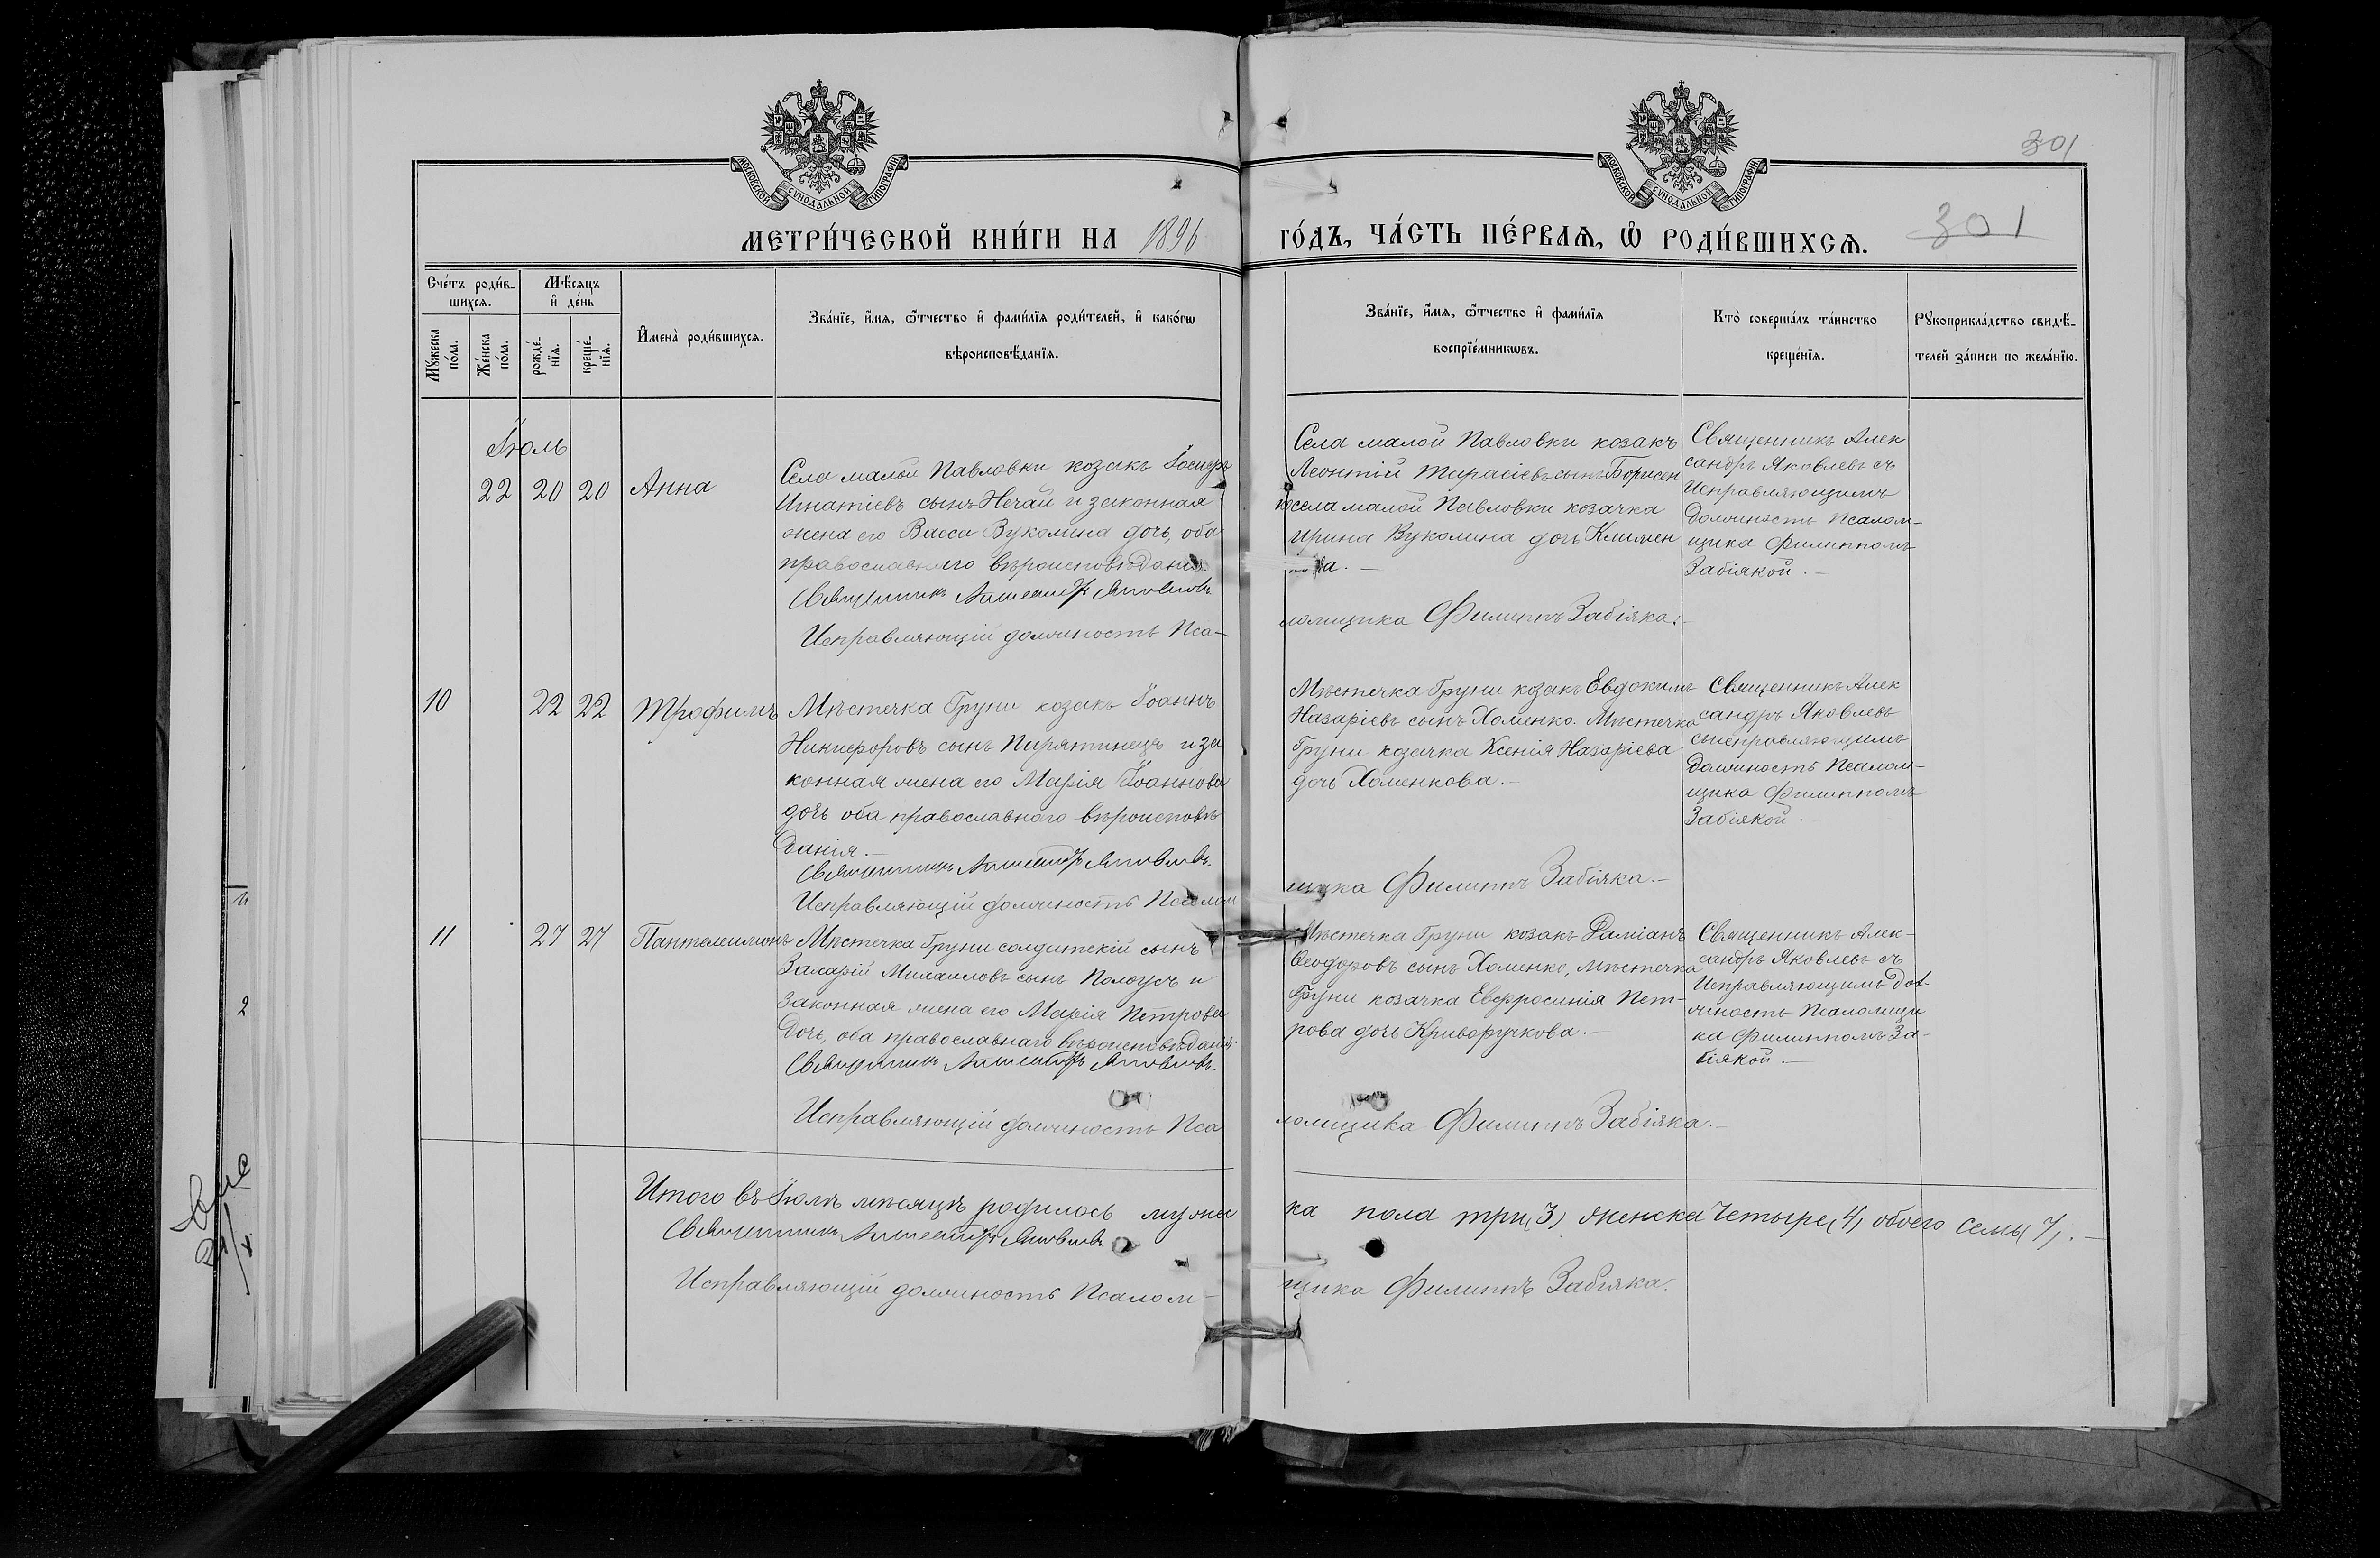 301
МОСКОВСКОЙ СѴНОДАЛЬНОЙ ТИПОГРАФІИ
МОСКОВСКОЙ СѴНОДАЛЬНОЙ ТИПОГРАФІИ
МЕТРИ́ЧЕСКОЙ КНИ́ГИ НА 1896 ГО́ДЪ, ЧА́СТЬ ПЕ́РВАѦ, Ѡ҆ РОДИ́ВШИХСѦ. 301
Сче́тъ роди́в-
шихсѧ.
Мꙋ́жеска
по́ла.
Же́нска
по́ла.
Мѣ́сѧцъ
и҆ де́нь
рожде́-
нїѧ.
креще́-
нїѧ.
И҆мена̀ роди́вшихсѧ.
Зва́нїе, и҆́мѧ, ѻ҆́тчество и҆ фами́лїѧ роди́телей, и҆ како́гѡ
вѣроисповѣ́данїѧ.
Зва́нїе, и҆́мѧ, ѻ҆́тчество и҆ фами́лїѧ
воспрїе́мникѡвъ.
Кто̀ соверша́лъ та́инство
креще́нїѧ.
Рꙋкоприкла́дство свидѣ́-
телей за́писи по жела́нїю.
Іюль
22 20 20 Анна
Села малой Павловки козакъ Іосифъ
Игнатіевъ сынъ Нечай и законная
жена его Васса Вуколина дочь, оба
православнаго вѣроисповѣданія.
Священникъ Александръ Яковлевъ
Исправляющій должность Пса-
Села малой Павловки козакъ
Леонтій Тарасіевъ сынъ Борисен
ко села малой Павловки козачка
Ирина Вуколина дочь Климен
това.—
ломщика Филиппъ Забіяка.—
Священникъ Алек
сандръ Яковлевъ съ
Исправляющимъ
Должность Псалом-
щика Филиппомъ
Забіякой.—
10 22 22 Трофимъ
Мѣстечка Груни козакъ Іоаннъ
Никифоровъ сынъ Пирятинецъ и за
конная жена его Марія Іоаннова
дочь оба православнаго вѣроисповѣ
данія.—
Священникъ Александръ Яковлевъ.
Исправляющій должность Псалом
Мѣстечка Груни козакъ Евдокимъ
Назаріевъ сынъ Хоменко. Мѣстечка
Груни козачка Ксенія Назаріева
дочь Хоменкова.—
щика Филиппъ Забіяка.—
Священникъ Алек
сандръ Яковлевъ
съ исправляющимъ
Должность Псалом-
щика Филиппомъ
Забіякой.
11 27 27 Пантелеимонъ
Мѣстечка Груни солдатскій сынъ
Захарій Михаиловъ сынъ Пологусъ и
законная жена его Марія Петрова
Дочь, оба православнаго вѣроисповѣданія.
Священникъ Александръ Яковлевъ.
Исправляющій должность Пса
Мѣстечка Груни козакъ Даміанъ
Ѳеодоровъ сынъ Хоменко, Мѣстечка
Груни козачка Евфросинія Пет-
рова дочь Криворучкова.—
ломщика Филиппъ Забіяка.—
Священникъ Алек-
сандръ Яковлевъ съ
Исправляющимъ Дол-
жность Псаломщи
ка Филиппомъ За-
біякой.—
Итого въ Іюлѣ мѣсяцѣ родилось мужес
ка пола три (3) женска Четыре (4) обоего семь (7).—
Священникъ Александръ Яковлевъ
Исправляющій должность Псалом-
щика Филиппъ Забіяка.
2